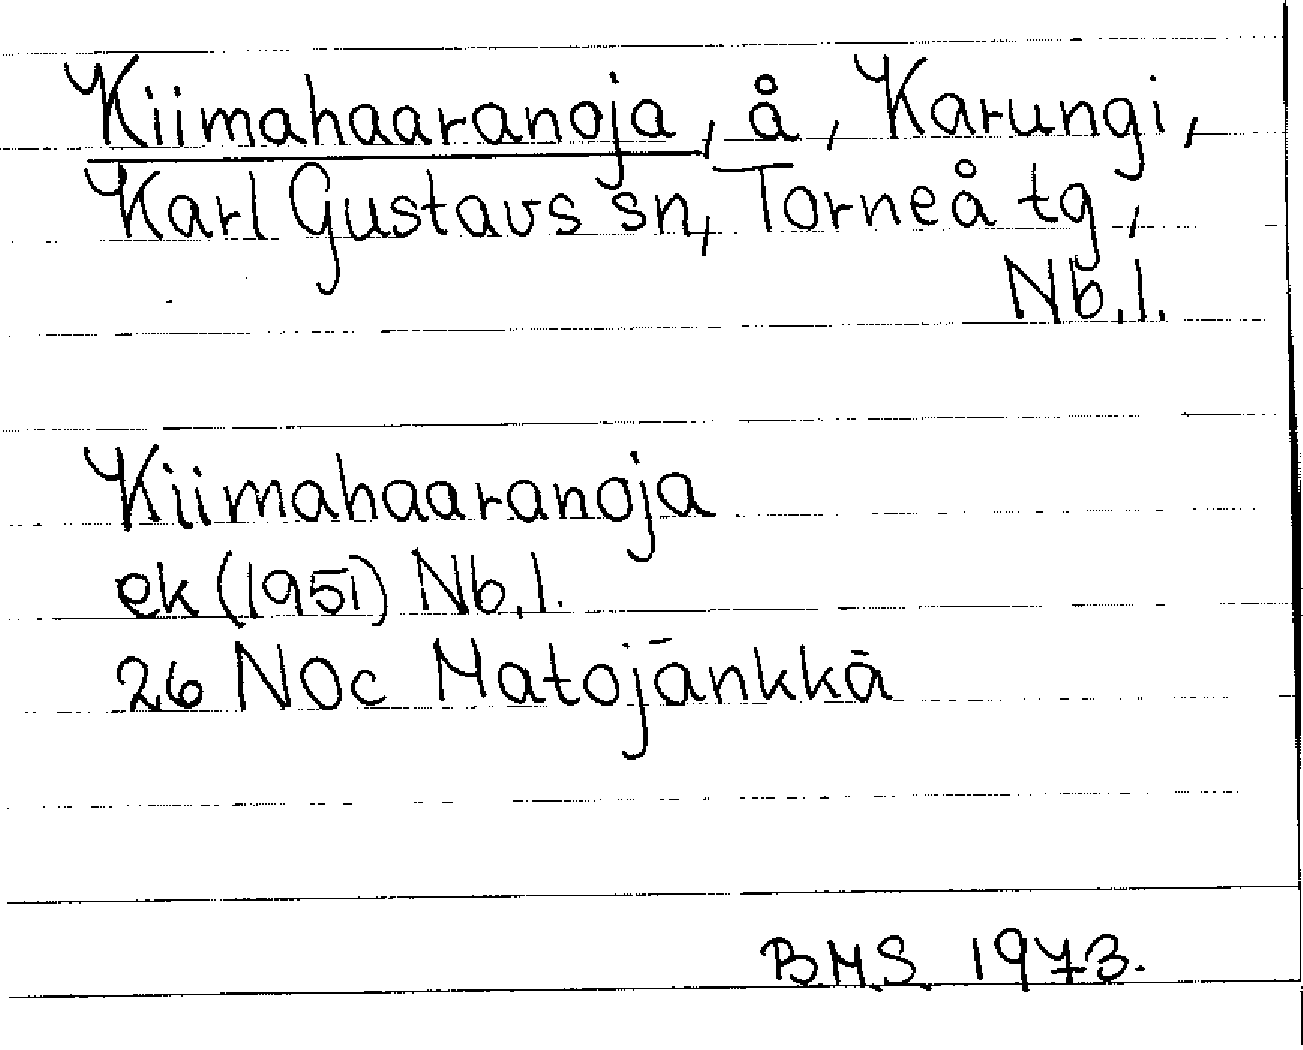 Kiimahaaranoja, å, Karungi,
Karl Gustavs sn, Torneå tg,
Nb.l.
Kiimahaaranoja
ek (1951) Nb.l.
26 NOc Matojänkkä
BMS 1973.